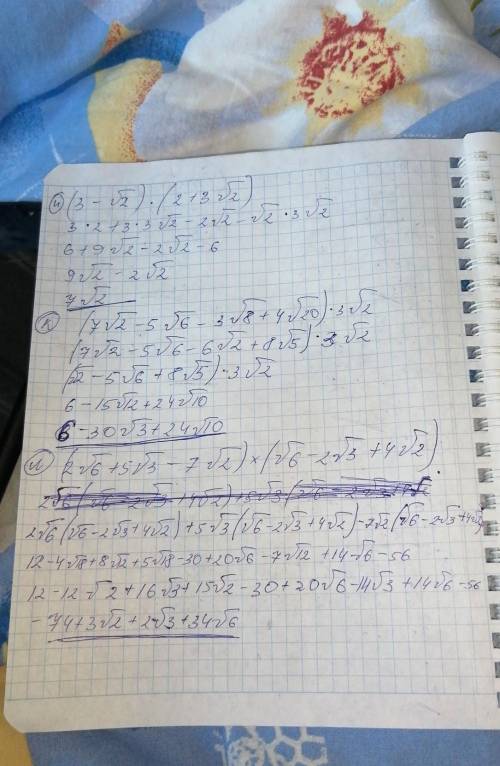 й) (3 - √2) · (2 + 3√2)
3 · 2 + 3 · 3√2 - 2√2 - √2 · 3√2
6 + 9√2 - 2√2 - 6
9√2 - 2√2
7√2
к) (7√2 - 5√6 - 3√8 + 4√20) · 3√2
(7√2 - 5√6 - 6√2 + 8√5) · 3√2
(√2 - 5√6 + 8√5) · 3√2
6 - 15√12 + 24√10
6 - 30√3 + 24√10
л) (2√6 + 5√3 - 7√2) × (√6 - 2√3 + 4√2)
2√6 (√6 - 2√3 + 4√2) + 5√3 (√6 - 2√3 + 4√2) - 7√2 (√6 - 2√3 + 4√2)
12 - 4√18 + 8√12 + 5√18 - 30 + 20√6 - 7√12 + 14√6 - 56
12 - 12√2 + 16√3 + 15√2 - 30 + 20√6 - 14√3 + 14√6 - 56
- 74 + 3√2 + 2√3 + 34√6